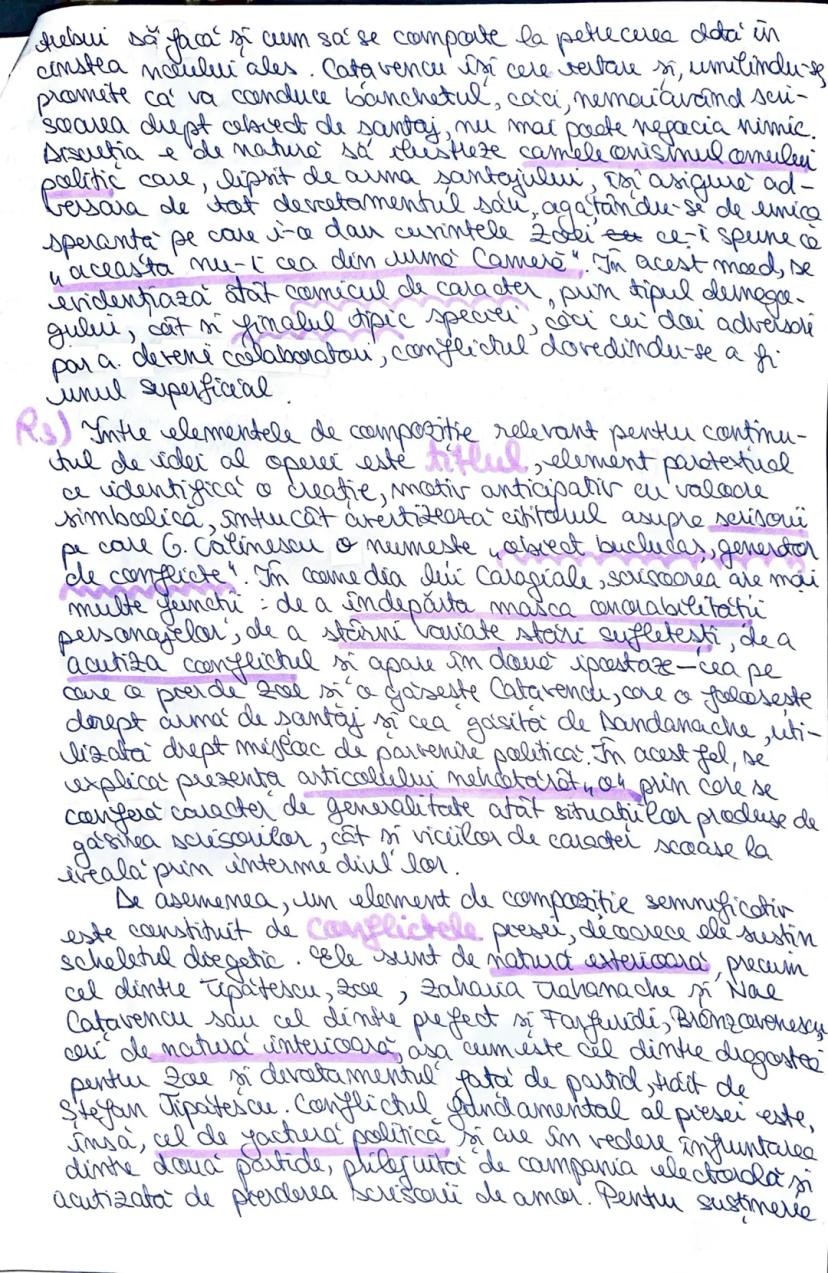 trebui să facă și cum să se comporte la petrecerea dată în
cinstea noului ales. Cațavencu își cere iertare și, umilindu-se,
promite că va conduce banchetul, căci, nemaiavând scri-
soarea drept obiect de șantaj, nu mai poate negocia nimic.
Discuția e de natură să ilustreze cameleonismul omului
politic care, lipsit de arma șantajului, își asigură ad-
versara de tot devotamentul său, agățându-se de unica
speranță pe care i-o dau cuvintele Zoei ce-i spune că
„aceasta nu-i cea din urmă Cameră". În acest mod, se
evidențiază atât comicul de caracter, prin tipul demago-
gului, cât și finalul tipic speciei, căci cei doi adversari
par a deveni colaboratori, conflictul dovedindu-se a fi
unul superficial.
R3) Între elementele de compoziție relevant pentru conținu-
tul de idei al operei este titlul, element paratextual
ce identifică o creație, motiv anticipativ cu valoare
simbolică, întrucât avertizează cititorul asupra scrisorii
pe care G. Călinescu o numește „obiect buclucaș, generator
de conflicte". În comedia lui Caragiale, scrisoarea are mai
multe funcții: de a îndepărta masca onorabilității
personajelor, de a stârni variate stări sufletești, de a
acutiza conflictul și apare în două ipostaze – cea pe
care o pierde Zoe și o găsește Cațavencu, care o folosește
drept armă de șantaj și cea găsită de Dandanache, uti-
lizată drept mijloc de parvenire politică. În acest fel, se
explică prezența articolului nehotărât „o", prin care se
conferă caracter de generalitate atât situațiilor produse de
găsirea scrisorilor, cât și viciilor de caracter scoase la
iveală prin intermediul lor.
De asemenea, un element de compoziție semnificativ
este constituit de conflictele piesei, deoarece ele susțin
scheletul diegetic. Ele sunt de natură exterioară, precum
cel dintre Tipătescu, Zoe, Zaharia Trahanache și Nae
Cațavencu sau cel dintre prefect și Farfuridi, Brânzovenescu,
ori de natură interioară, așa cum este cel dintre dragostea
pentru Zoe și devotamentul față de partid, trăit de
Ștefan Tipătescu. Conflictul fundamental al piesei este,
însă, cel de factură politică și are în vedere înfruntarea
dintre două partide, prilejuită de campania electorală și
acutizată de pierderea scrisorii de amor. Pentru susținerea